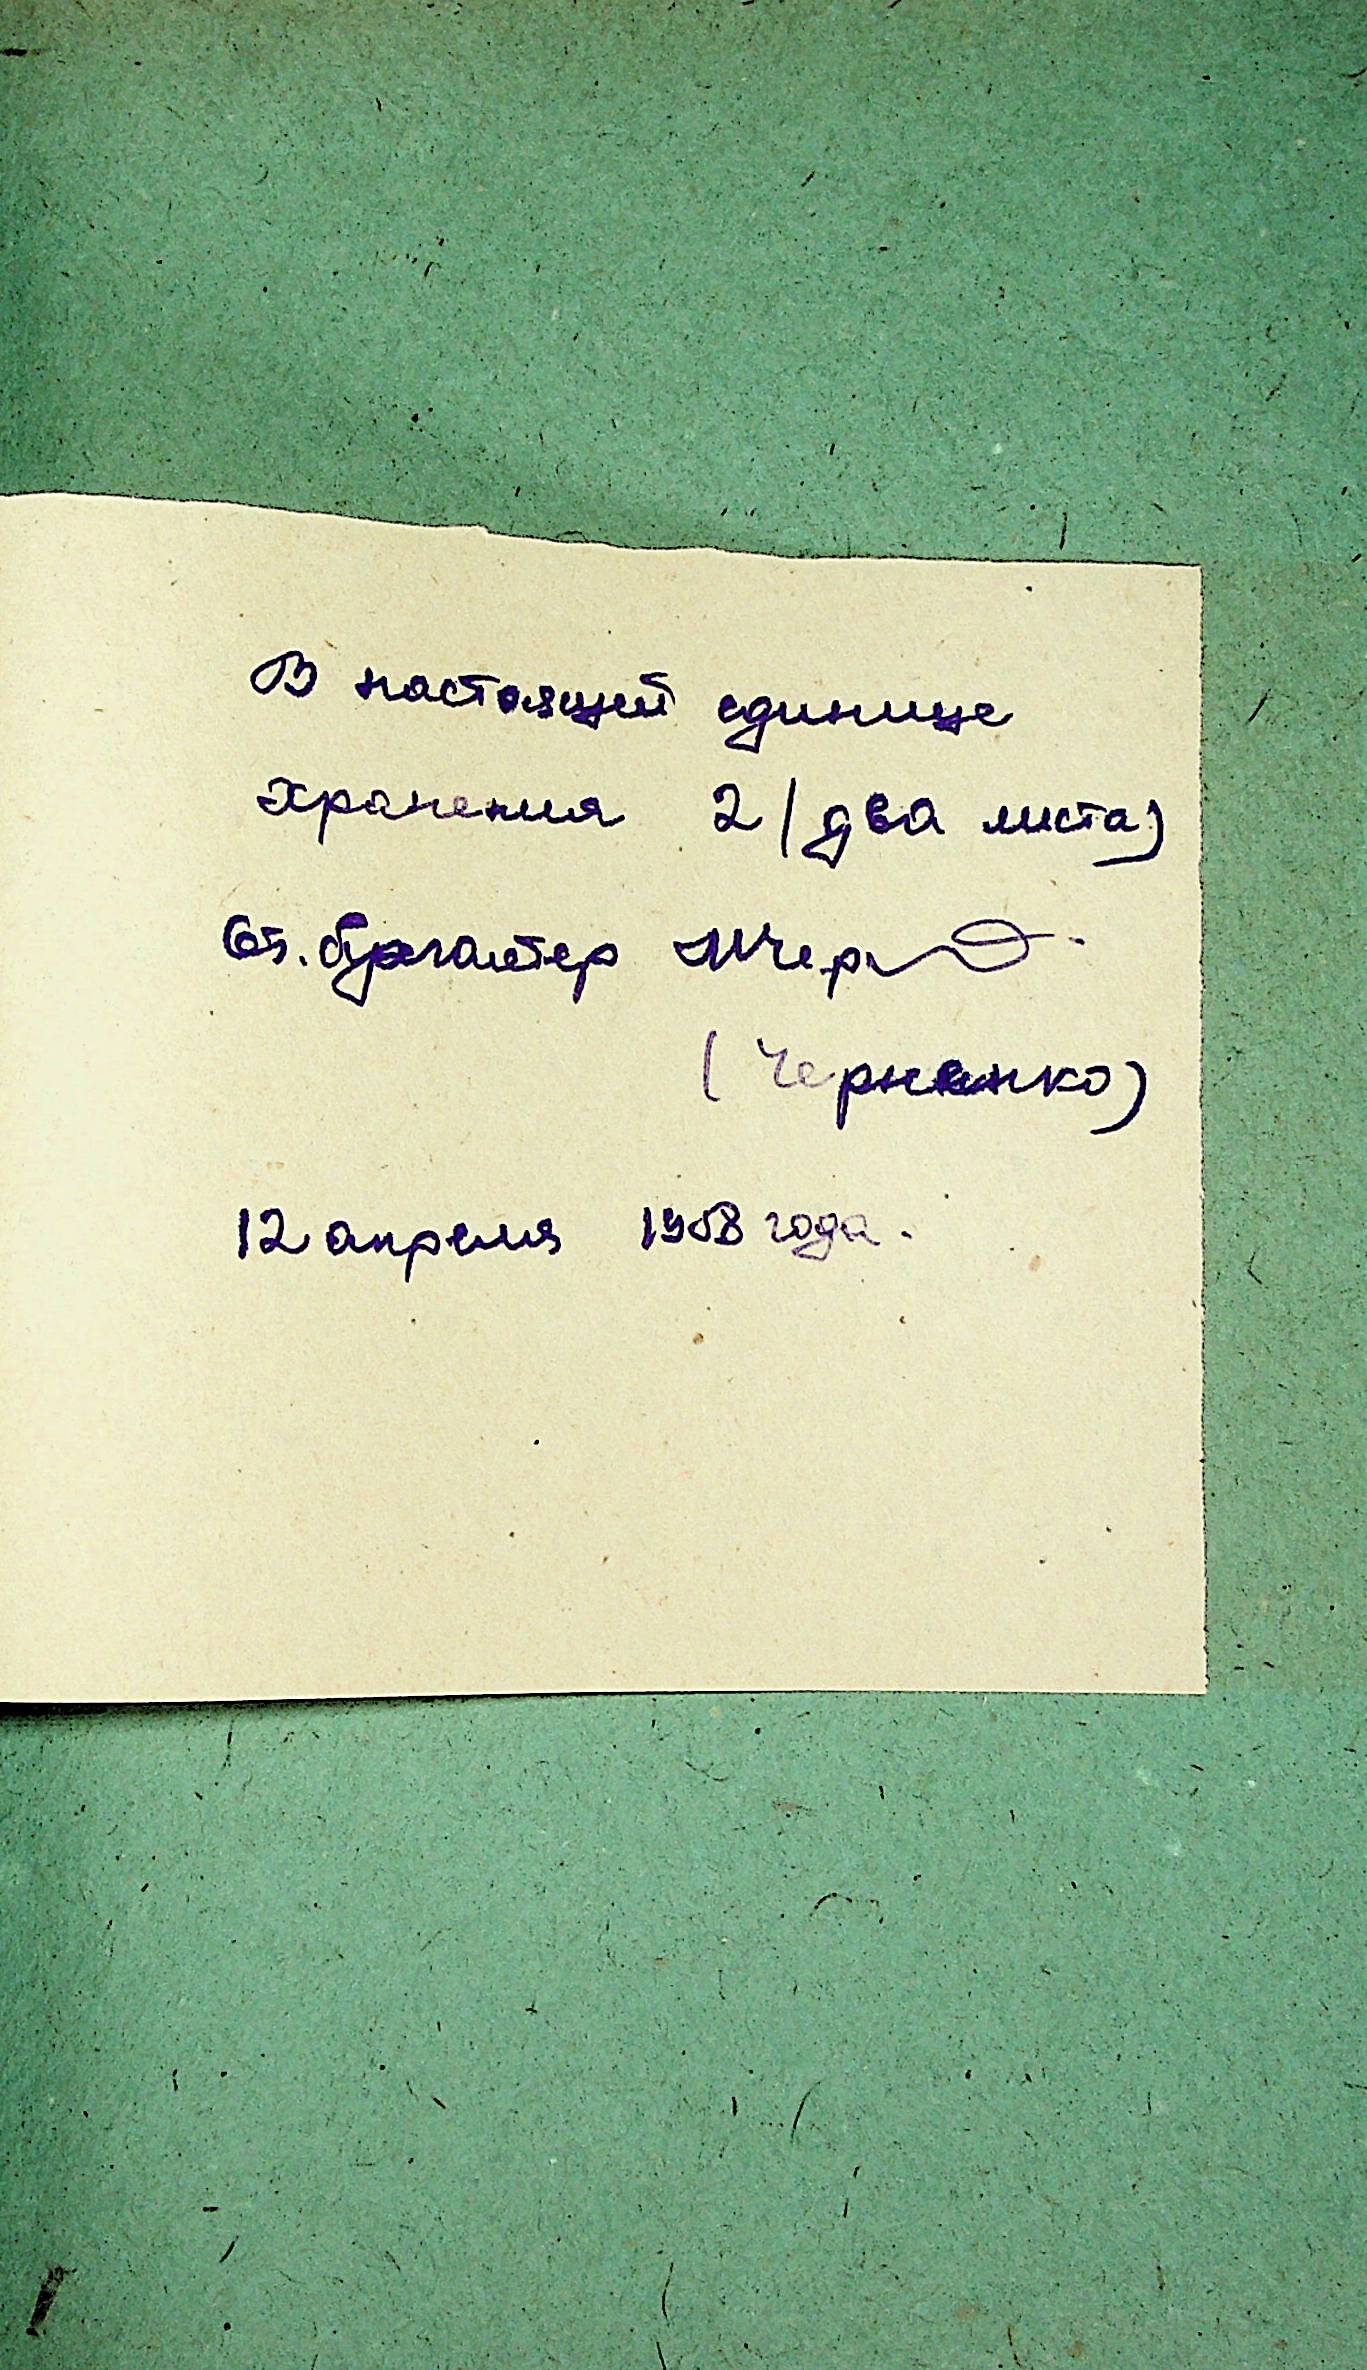 В настоящей единице
хранения 2 (два листа)
Ст. бухгалтер
(Черненко)
12 апреля 1958 года.